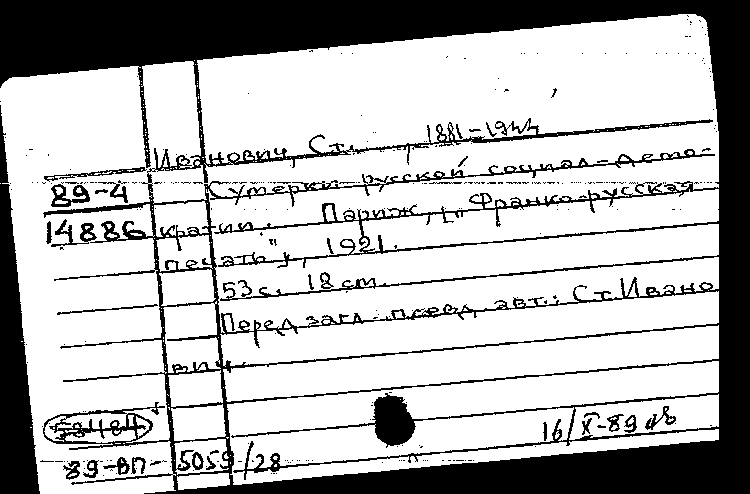 Иванович, Ст. , 1881-1944
89-4 Сумерки русской социал-демо-
14886 кратии. Париж, "Франко-русская
печать", 1921.
53 с. 18 cm.
Перед загл. псевд. авт.: Ст. Ивано
вич.
53484
16/X-89
89-ВП- 5059/28